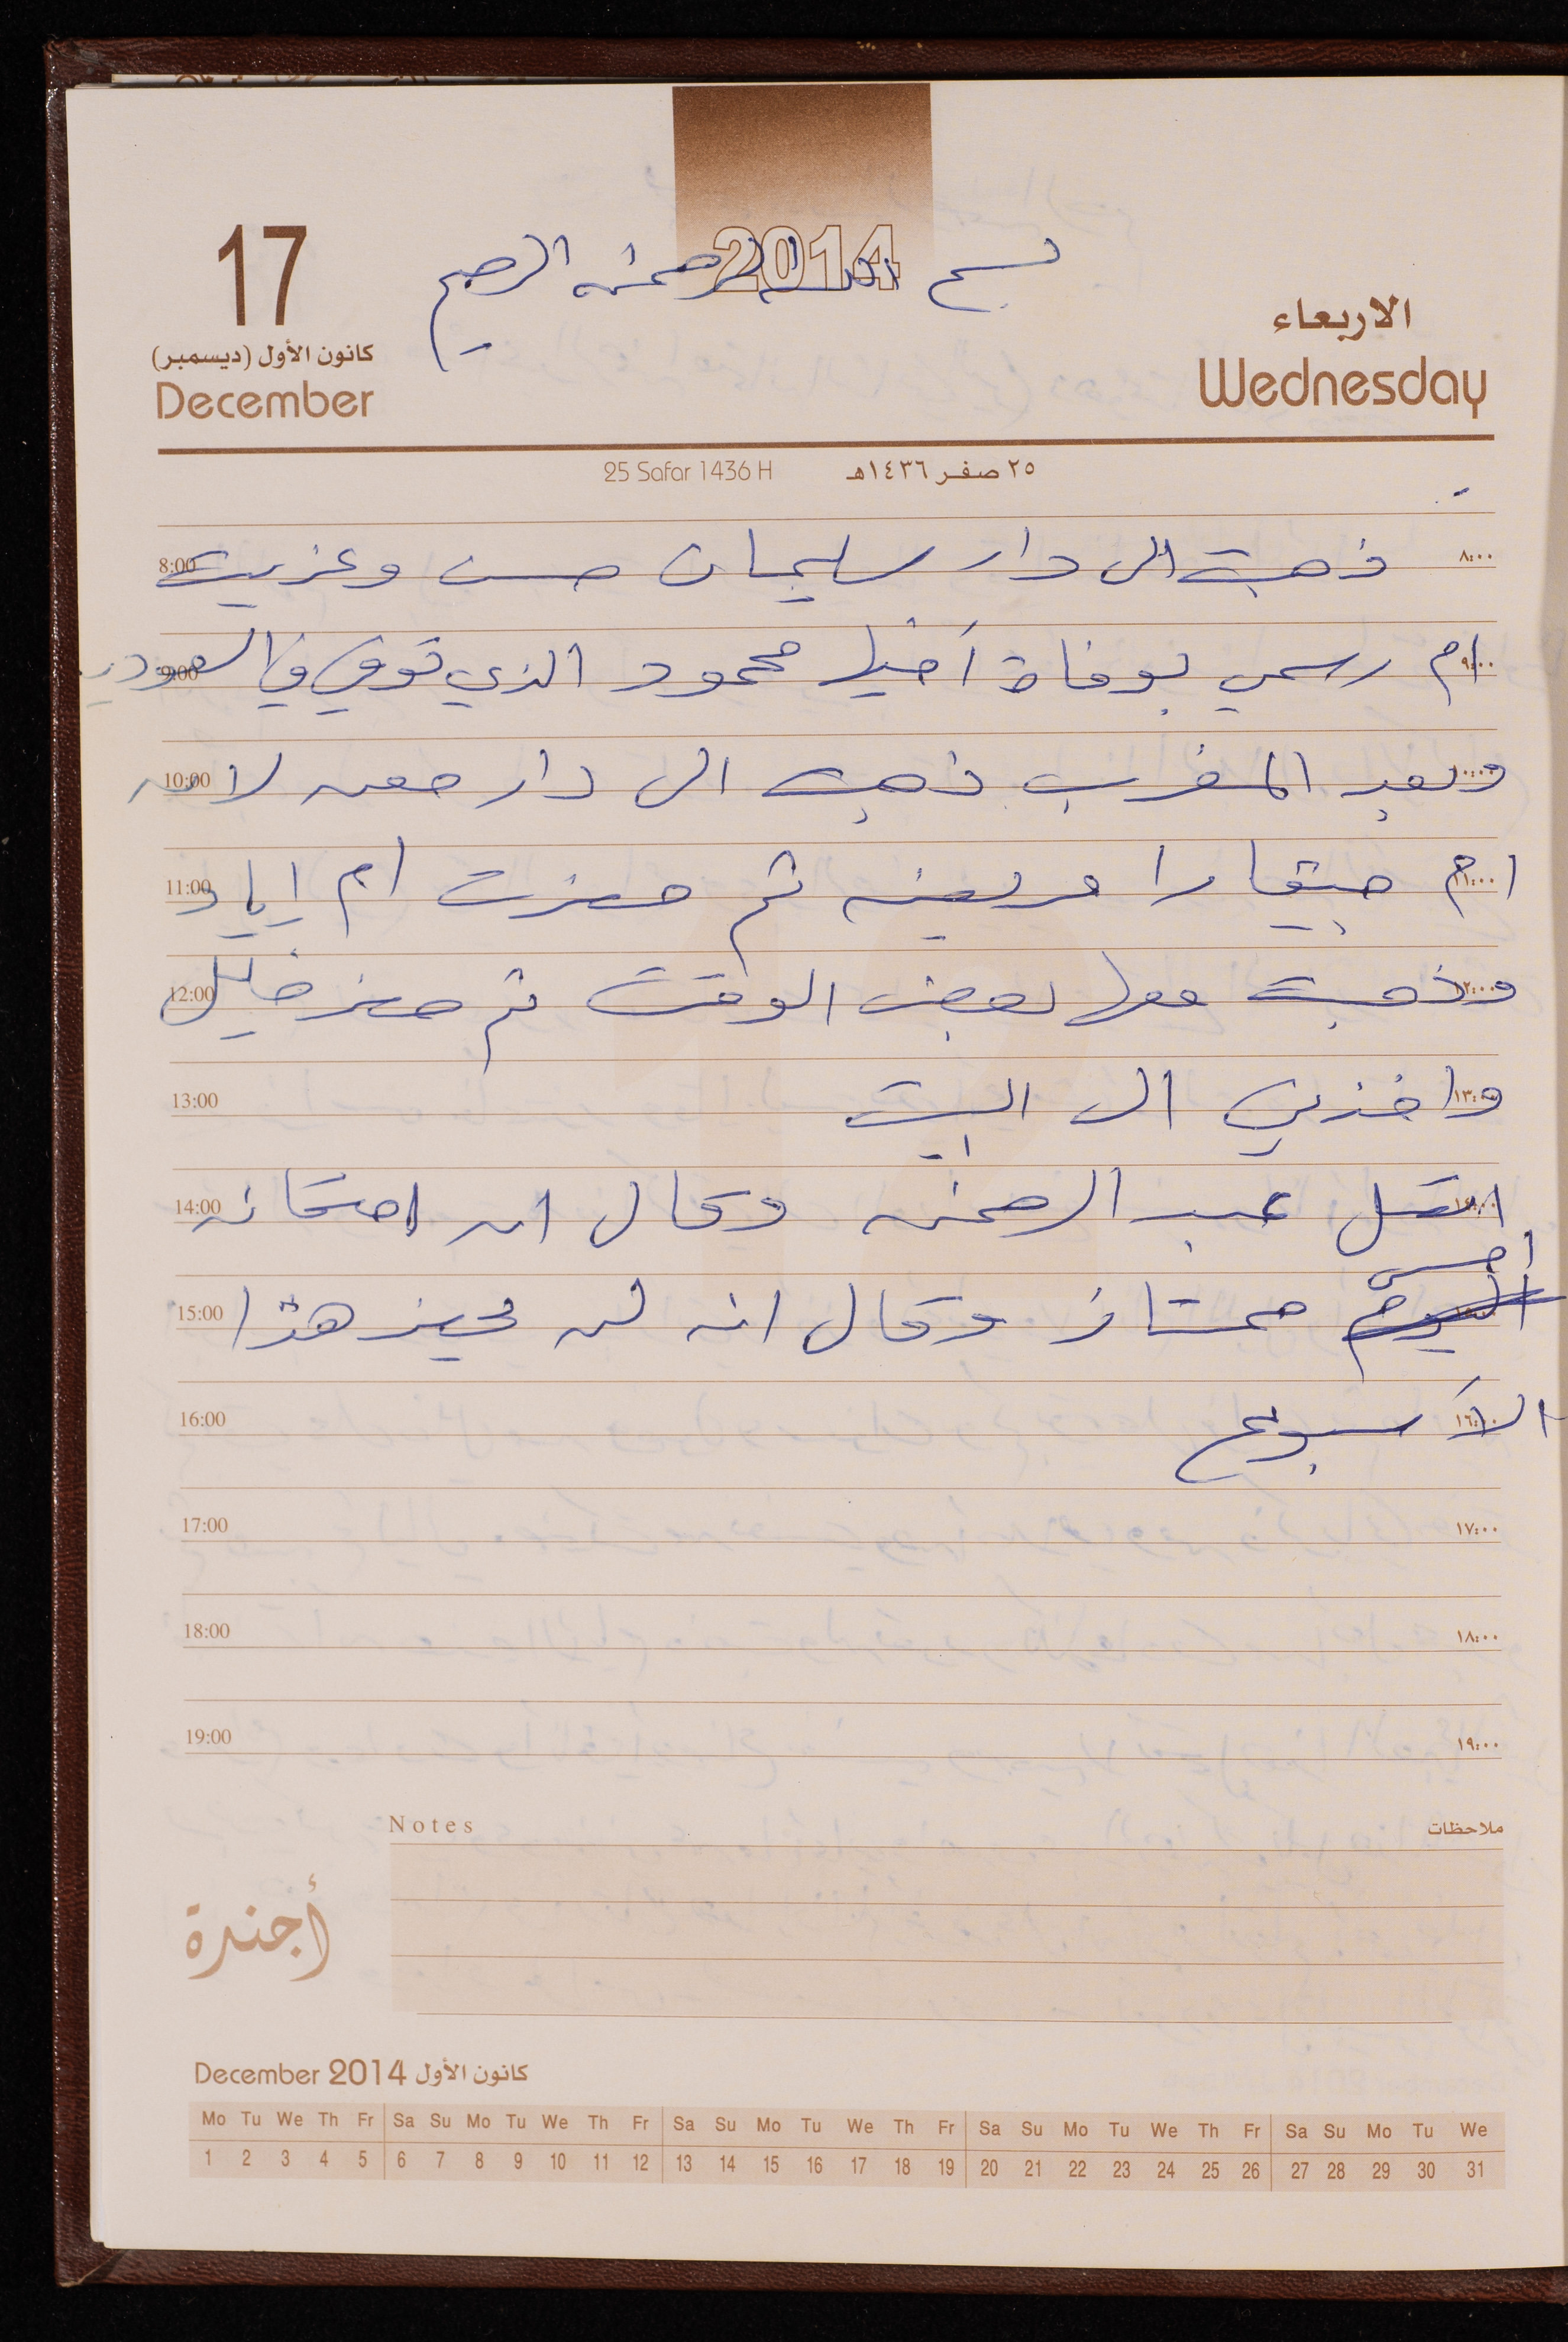 2014
17
بسم الله الرحمن الرحيم
الاربعاء
كانون الأول (ديسمبر)
Wednesday
December
25 Safar 1436 H ٢٥ صفر ١٤٣٦هـ
8:00 ذهبت الى دار سليمان حسن وعزيت ٨:٠٠
9:00 ام رسمي بوفاة أخيها محمود الذي توفي في السعوديه ٩:٠٠
10:00 وبعد المغرب ذهبت الى دار معن لان ١٠:٠٠
11:00 ام مريضه ثم حضرت ام اياد ١١:٠٠
12:00 وذهبت معها بعض الوقت ثم حضر خليل ١٢:٠٠
13:00 واخذني الى البيت ١٣:٠٠
14:00 اتصل عبد الرحمن وقال ان امتحانه ١٤:٠٠
امس
15:00 اليوم ممتاز وقال انه لن يحضر هذا ١٥:٠٠
16:00 الأسبوع ١٦:٠٠
17:00 ١٧:٠٠
18:00 ١٨:٠٠
19:00 ١٩:٠٠
Notes ملاحظات
أجندة
December 2014 كانون الأول
Mo Tu We Th Fr Sa Su Mo Tu We Th Fr Sa Su Mo Tu We Th Fr Sa Su Mo Tu We Th Fr Sa Su Mo Tu We
1 2 3 4 5 6 7 8 9 10 11 12 13 14 15 16 17 18 19 20 21 22 23 24 25 26 27 28 29 30 31